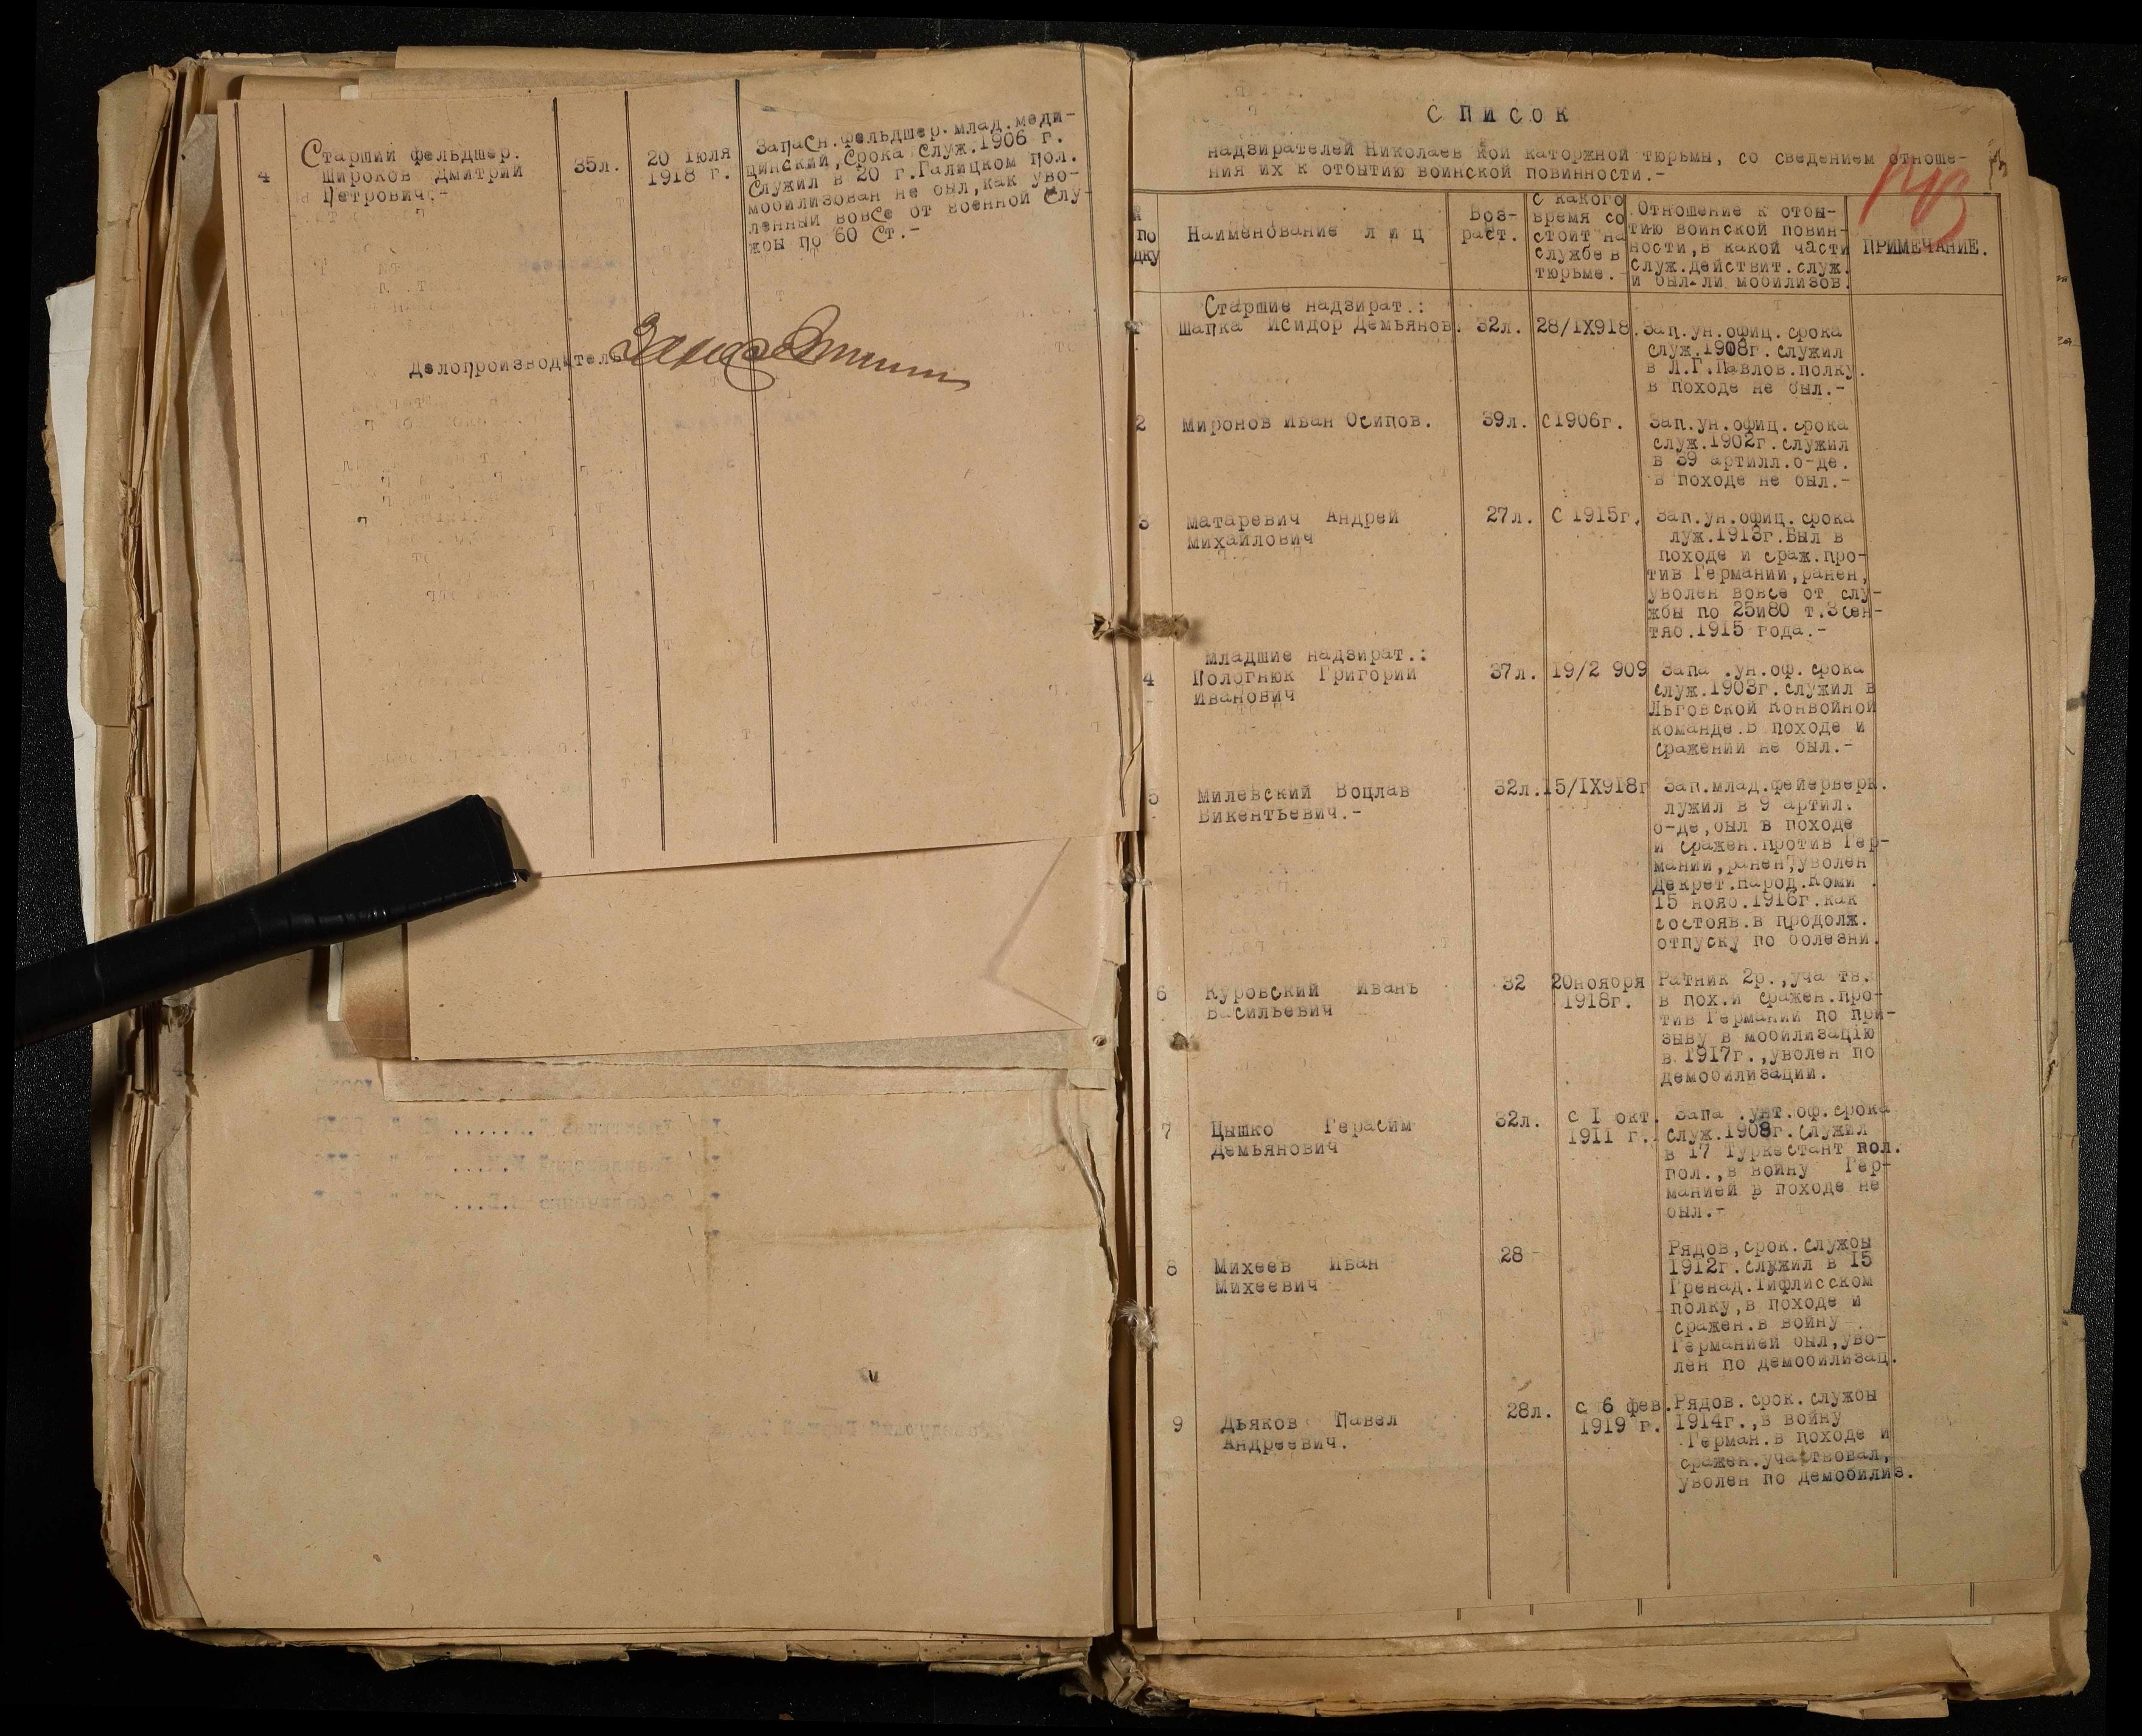 4
Старший фельдшер.
Широков Дмитрий
Петрович.-
35л.
20 Iюля
1918 г.
Запасн.фельдшер.млад.меди-
цинский,срока служ.1906 г.
Служил в 20 г.Галицком пол.
мобилизован не был,как уво-
ленный вовсе от военной слу-
жбы по 60 ст.-
Делопроизводитель
СПИСОК
надзирателей Николаев кой каторжной тюрьмы, со сведением отноше-
ния их к отбытию воинской повинности.-
№
по
дку
Наименование лиц
Воз-
раст.
С какого
время со
стоит на
службе в
тюрьме.-
Отношение к отбы-
тию воинской повин-
ности,в какой части
служ.действит.служ.
и был-ли мобилизов.
ПРИМЕЧАНИЕ.
Старшие надзират.:
Шапка Исидор Демьянов.
32л.
28/IX918.
Зап.ун.офиц.срока
служ.1908г.служил
в Л.Г.Павлов.полку.
в походе не был.-
2
Миронов Иван Осипов.
39л.
с1906г.
Зап.ун.офиц.срока
служ.1902г.служил
в 39 артилл.б-де.
в походе не был.-
3
Матаревич Андрей
Михайлович
27л.
С 1915г.
Зап.ун.офиц.срока
луж.1913г.Был в
походе и сраж.про-
тив Германии,ранен,
уволен вовсе от слу-
жбы по 25и80 т.3сен-
тяб.1915 года.-
Младшие надзират.:
4
Пологнюк Григорий
Иванович
37л.
19/2 909
Запа .ун.оф.срока
служ.1903г.служил в
Льговской Конвойной
команде.В походе и
сражений не был.-
5
Милевский Воцлав
Викентьевич.-
32л.
15/IX918г
Зап.млад.фейерверк.
лужил в 9 артил.
б-де,был в походе
и сражен.против Гер-
мании,ранен,уволен
Декрет.Народ.Коми .
15 нояб.1918г.как
состояв.в продолж.
отпуску по болезни.
6
Куровский Иванъ
Васильевич
32
20ноября
1918г.
Ратник 2р.,уча тв.
в пох.и сражен.про-
тив Германии по при-
зыву в мобилизацiю
в 1917г.,уволен по
демобилизации.
7
Цышко Герасим
Демьянович
32л.
с I окт.
1911 г.
Запа .унт.оф.срока
служ.1908г.служил
в 17 Туркестант пол.
пол.,в войну Гер-
манией в походе не
был.-
8
Михеев Иван
Михеевич
28
Рядов,срок.службы
1912г.служил в 15
Гренад.Тифлисском
полку,в походе и
сражен.в войну
Германией был,уво-
лен по демобилизац.
9
Дьяков Павел
Андреевич.
28л.
с 6 фев.
1919 г.
Рядов.срок.службы
1914г.,в войну
Герман.в походе и
сражен.участвовал,
уволен по демобилиз.